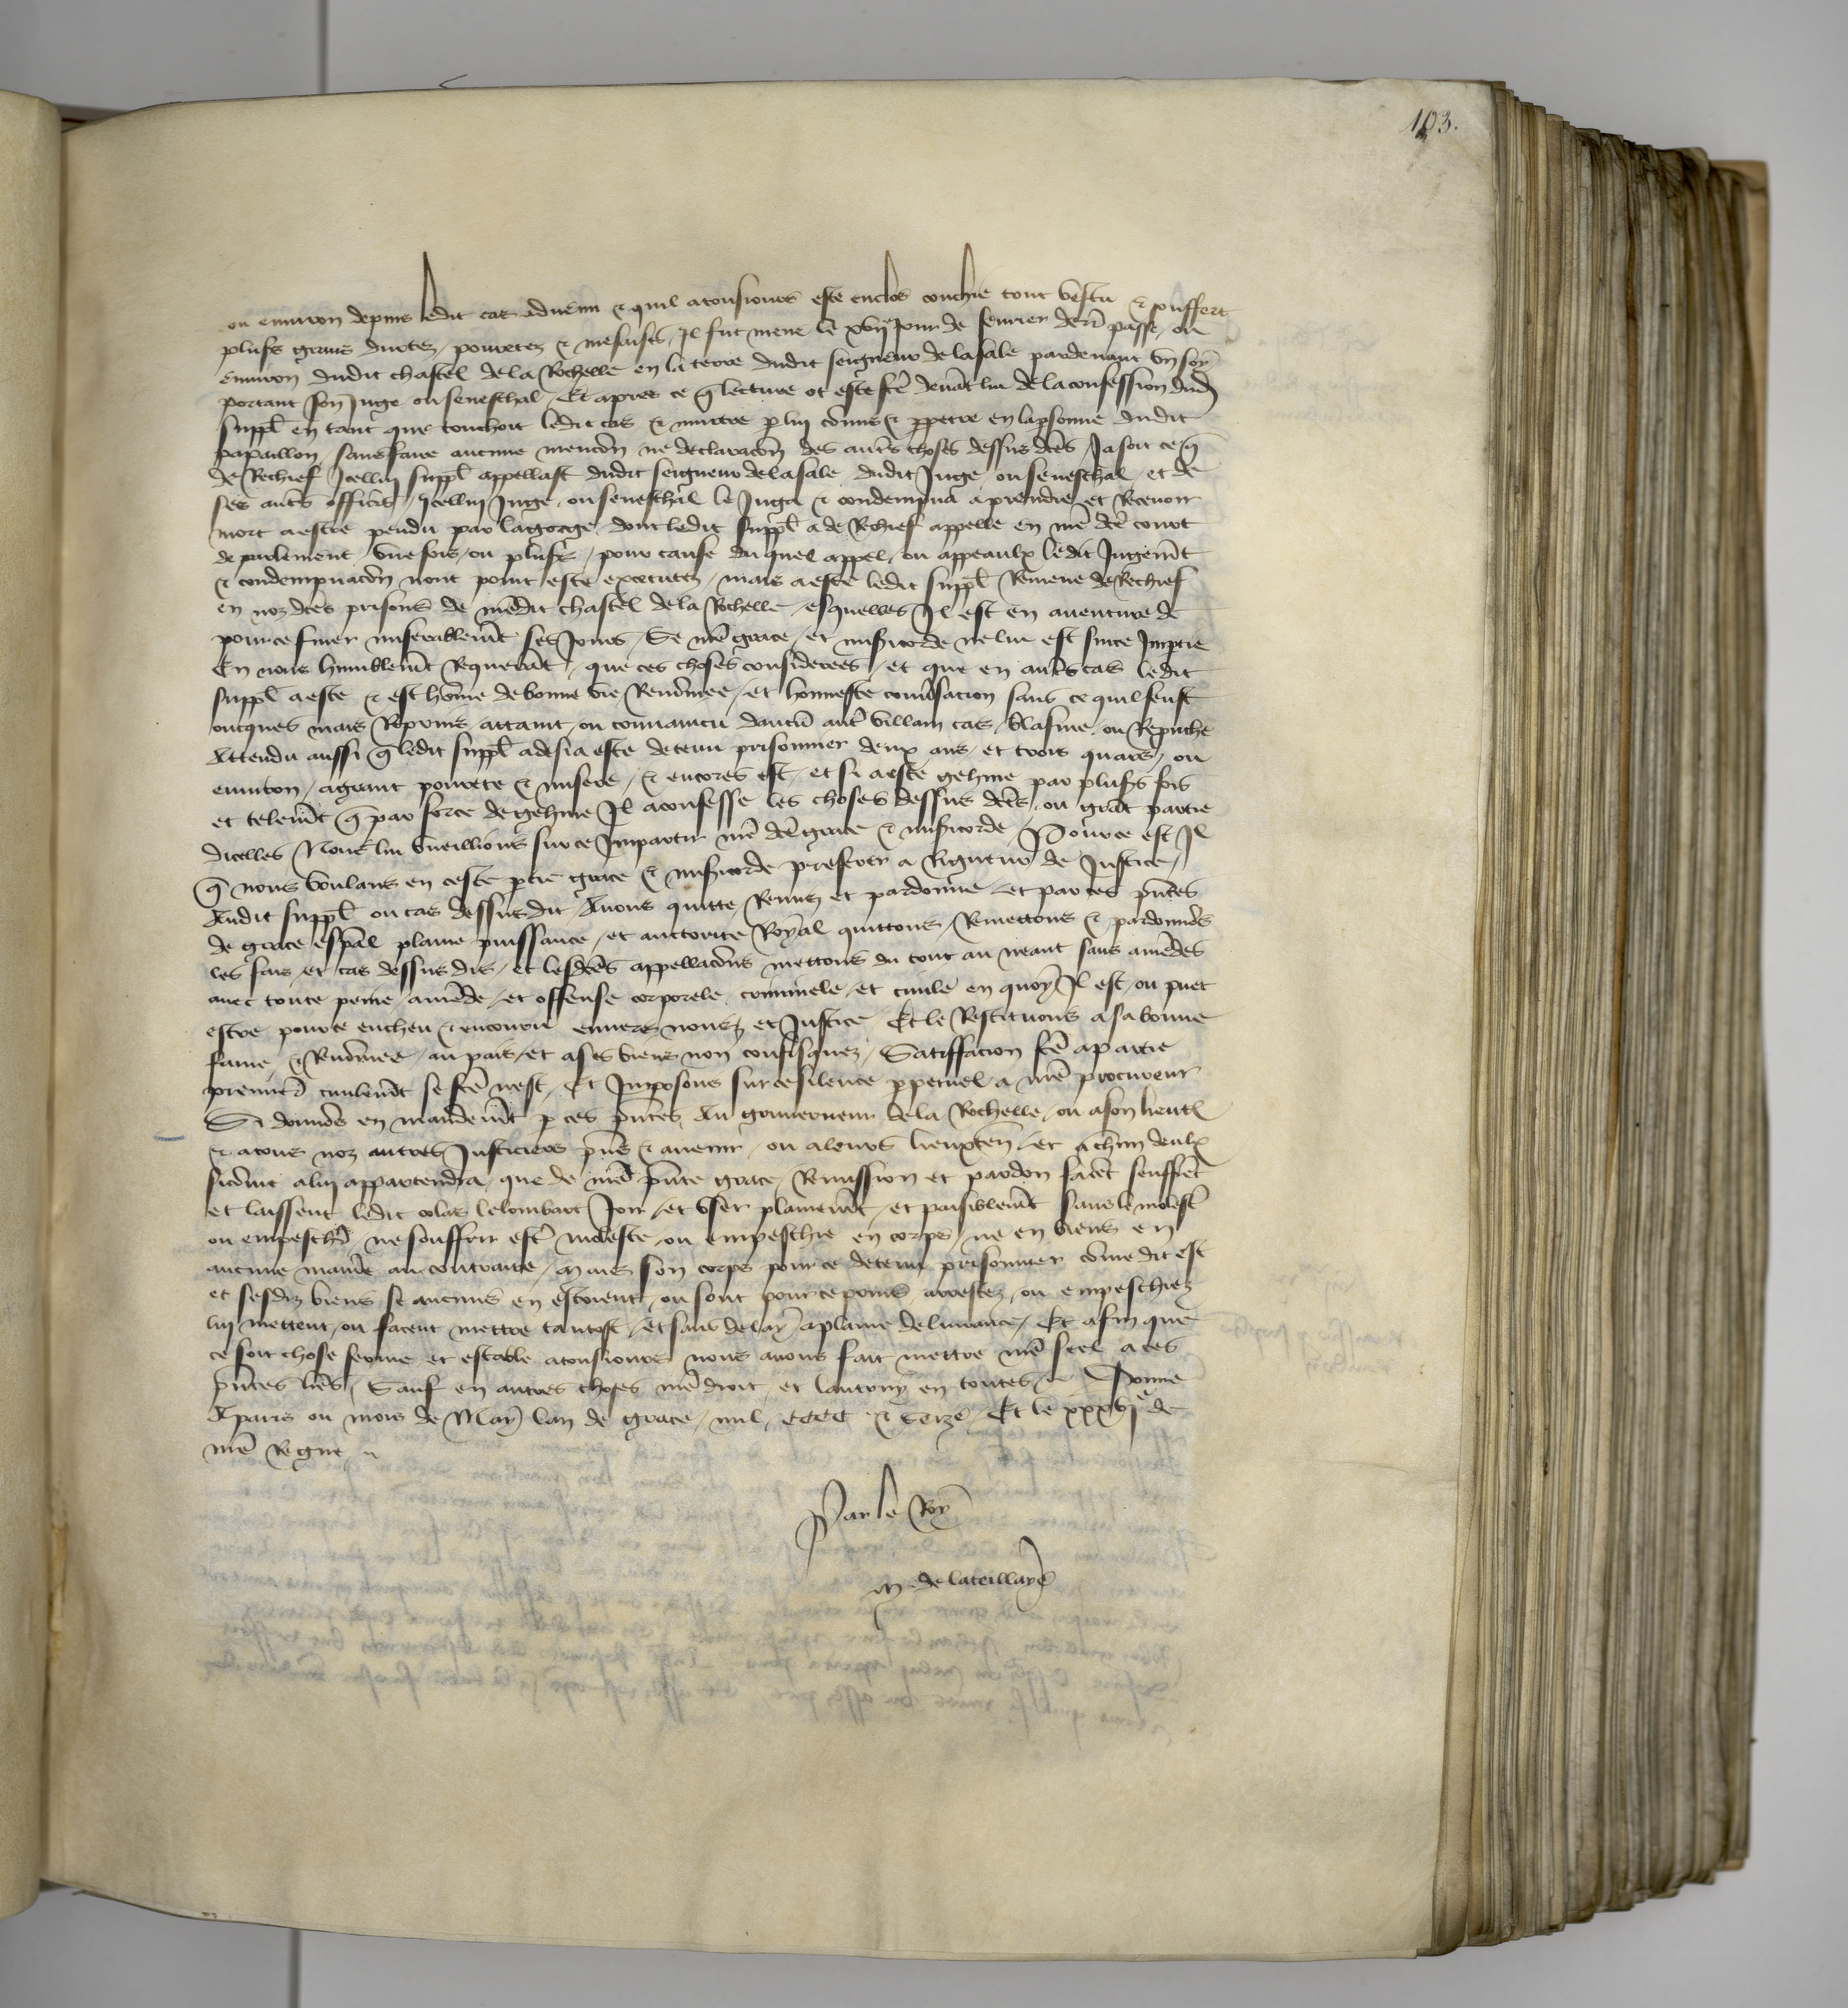 103.
ou environ depuis ledit cas advenu & quil a tousiours este enclos couchie tout vestu & souffert
plus's grans durtez, povretez & mesaises, Il fut mene le xvije Jour de fevrier derr' passe, ou
environ dudit chastel de la Rochelle en la terre dudit seigneur de la sale pardevant un soy
portant son Juge ou seneschal, Et apres ce q̄ lecture ot este fcē devāt lui de la confession dud'
suppl' en tant que touchoit ledit cas & murtre p lui cōmis & ppetre en la psonne dudit
papaillon, sans faire aucune mencōn ne declaracōn des aut's choses dessus dc̄es, Ja soit ce q̄
de Rechief Icellui suppl' appellast dudit seigneur de la sale, dudit Juge, ou seneschal, et de
ses aut's offici's, Icellui Juge, ou seneschal le Juga & condempna a prendre et Recevoir
mort a estre pendu par la gorge dont ledit suppl' a de Rechief appelle en nr̄e dc̄e court
de parlement une fois, ou plus's, pour cause duquel appel, ou appeaulx ledit Jugem̄t
& condempnacōn nont point este executez, mais a este ledit suppl' Remene de Rechief
en noz dc̄es prisons de nr̄edit chastel de la Rochelle, esquelles Il est en aventure de
pour ce finer miserablem̄t ses Jours, Se nr̄e grace, et miš̄icorde ne lui est sur ce Imptie
En nous humblem̄t Requerāt, que ces choses considerees, et que en aut's cas ledit
suppl' a este & est hōme de bonne vie Renōmee, et honneste conv̄sacion sans ce quil feust
oncques mais Reprins attaint, ou convaincu daucū aut' villain cas, blasme, ou Repuche
Attendu aussi q̄ ledit suppl' a desia este detenu prisonnier deux ans, et trois quars, ou
environ, a grant povrete & misere, & encores est, et si a este gehine par plus's fois
et telem̄t q̄ par force de gehine Il a confesse les choses dessus dc̄es, ou grāt partie
dicelles Nous lui vueillions sur ce Impartir nr̄e dc̄e grace & miš̄icorde, Pour ce est Il
q̄ nous voulans en ceste ptie grace & miš̄icorde preferer a Rigueur de Justice,
Audit suppl' ou cas dessusdit, Avons quitte, Remis et pardonne, et par ces p̄n̄tes
de grace esp̄al plaine puissance, et auctorite Royal quittons, Remettons & pardonnōs
les fais, et cas dessus dis, et lesdc̄es appellacōns mettons du tout au neant sans amēdes
avec toute peine, amēde, et offense corporele, criminele, et civile en quoy Il est, ou puet
estre, pour ce encheu & encouru envers nous, et Justice, Et le Restituons a sa bonne
fame, & Renōmee, au pais, et a ses biens non confisquez, Satisfacion fcē a partie
premier̄ civilem̄t se fcē nest, Et Imposons sur ce silence ppetuel, a nr̄e procureur
Si donnōs en mandem̄t p ces p̄n̄tes, Au gouverneur de la Rochelle, ou a son lieut'
& a tous noz autres Justiciers p̄n̄s & avenir, ou a leurs lieuxten', et a ch̄un deulx
sicōme a lui appartendra, que de nr̄e p̄n̄te grace, Remission et pardon facēt seuffrēt
et laissent ledit colas le lombart Joir, et user plainem̄t, et paisiblem̄t, sans le molest'
ou empesch', ne souffrir est' moleste, ou empeschie en corps, ne en biens en
aucune manie' au contraire, mais son corps pour ce detenu prisonnier cōme dit est
et sesdiz biens se aucuns en estoient, ou sont pour ce prins, arrestez, ou empeschiez
lui mettent, ou facent mettre tantost, et sans delay, a plaine delivrance, Et afin que
ce soit chose ferme et estable a tousiours nous avons fait mettre nr̄e seel a ces
p̄n̄tes lr̄es, Sauf en autres choses nr̄e droit, et lautruy en toutes, Donne
A paris ou mois de May lan de grace, mil, cccc & seize, Et le xxxvje de
nr̄e Regne
Par le Roy
M. de la teillaye